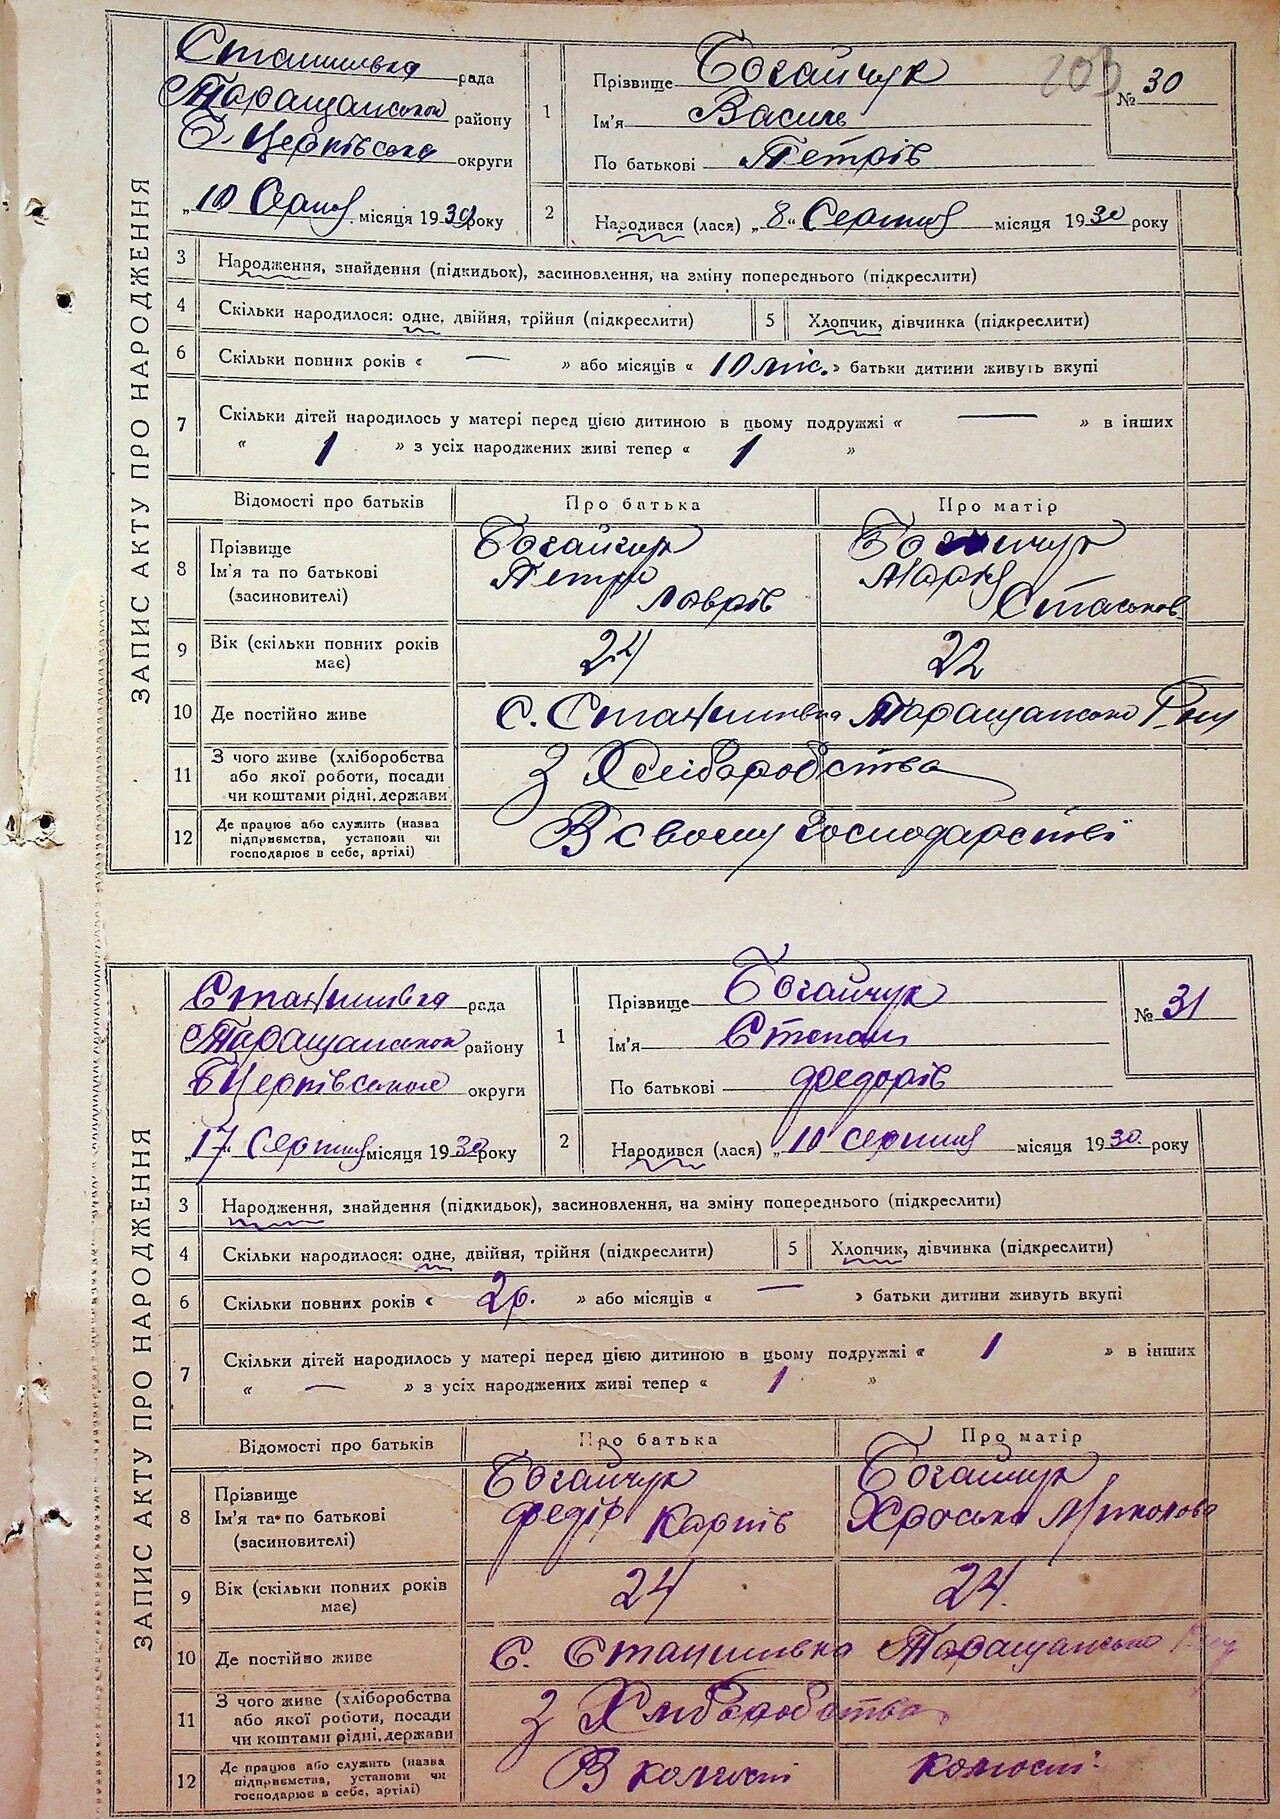 ЗАПИС АКТУ ПРО НАРОДЖЕННЯ
Станишівка рада
Таращанськой району
Б. Церківська округи
„10 Серпня місяця 1930 року
203
№ 30
1 Прізвище Богайчук
Ім'я Василь
По батькові Петрів
2 Народився (лася) „8“ Серпня місяця 1930 року
3 Народження, знайдення (підкидьок), засиновлення, на зміну попереднього (підкреслити)
4 Скільки народилося: одне, двійня, трійня (підкреслити) 5 Хлопчик, дівчинка (підкреслити)
6 Скільки повних років « — » або місяців « 10 міс. » батьки дитини живуть вкупі
7 Скільки дітей народилось у матері перед цією дитиною в цьому подружжі « — » в інших
« 1 » з усіх народжених живі тепер « 1 »
Відомості про батьків Про батька Про матір
8 Прізвище Богайчук Богайчук
Ім'я та по батькові Петро
(засиновителі) Лаврів
9 Вік (скільки повних років має) 24 22
10 Де постійно живе с. Станишівка Таращансько Р-ну
11 З чого живе (хліборобства
або якої роботи, посади
чи коштами рідні, держави
З Хліборобства
12 Де працює або служить (назва
підприємства, установи чи
господарює в себе, артілі)
В своєму господарстві
ЗАПИС АКТУ ПРО НАРОДЖЕННЯ
Станишівка рада
Таращанськой району
Б Церківської округи
„17“ Серпня місяця 1930 року
№ 31
1 Прізвище Богайчук
Ім'я Степан
По батькові Федорів
2 Народився (лася) „10 серпня місяця 1930 року
3 Народження, знайдення (підкидьок), засиновлення, на зміну попереднього (підкреслити)
4 Скільки народилося: одне, двійня, трійня (підкреслити) 5 Хлопчик, дівчинка (підкреслити)
6 Скільки повних років « 2р. » або місяців « — » батьки дитини живуть вкупі
7 Скільки дітей народилось у матері перед цією дитиною в цьому подружжі « 1 » в інших
« — » з усіх народжених живі тепер « 1 »
Відомості про батьків Про батька Про матір
8 Прізвище Богайчук Богайчук
Ім'я та по батькові Федір Карпів Хроська Миколова
(засиновителі)
9 Вік (скільки повних років має) 24 24.
10 Де постійно живе С. Станишівка Таращансько
11 З чого живе (хліборобства
або якої роботи, посади
чи коштами рідні, держави
З Хліборобства
12 Де працює або служить (назва
підприємства, установи чи
господарює в себе, артілі)
В колгоспі колгоспі